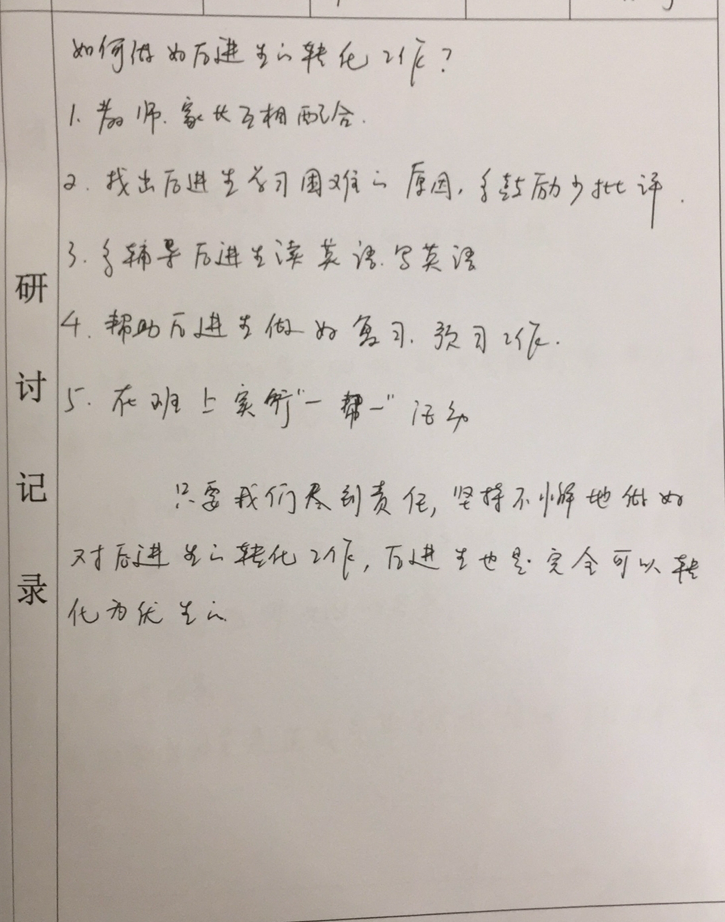 如何做好后进生的转化工作?
1. 教师、家长互相配合.
2. 找出后进生学习困难的原因,多鼓励少批评.
3. 多辅导后进生读英语、写英语
4. 帮助后进生做好复习、预习工作.
5. 在班上实行“一帮一”活动
只要我们尽到责任,坚持不懈地做好
对后进生的转化工作,后进生也是完全可以转
化为优生的
研讨记录